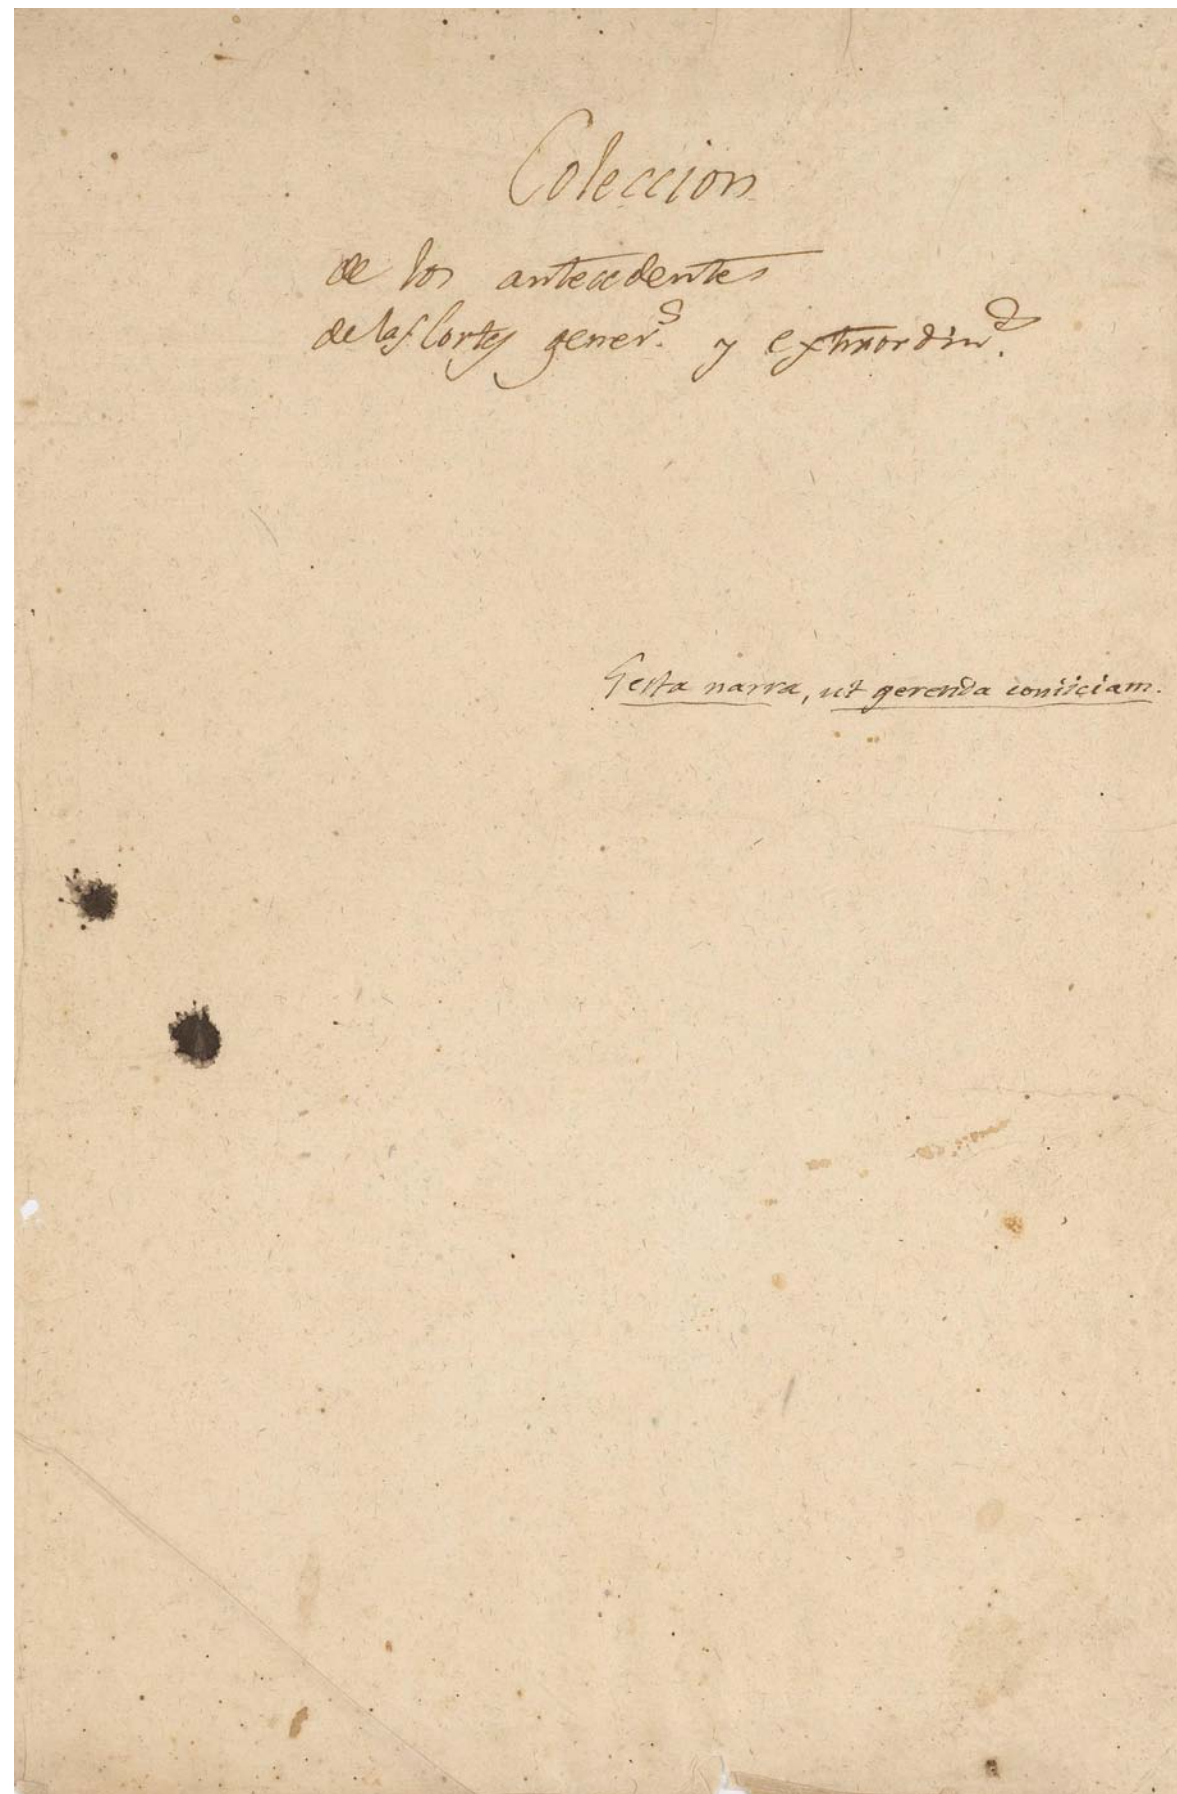 Coleccion
de los antecedentes
de las Cortes gener.s y extraordin.s
Gesta narra, ut gerenda coniiciam.